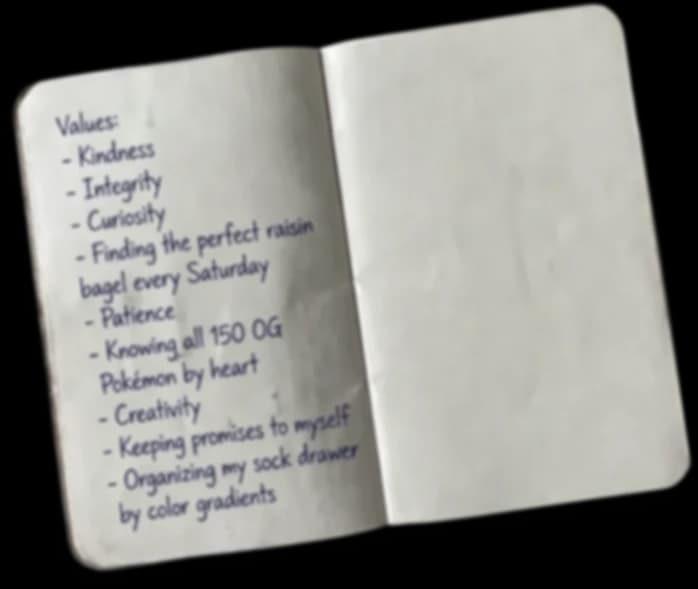 Values:
- Kindness
- Integrity
- Curiosity
- Finding the perfect raisin
bagel every Saturday
- Patience
- Knowing all 150 OG
Pokémon by heart
- Creativity
- Keeping promises to myself
- Organizing my sock drawer
by color gradients